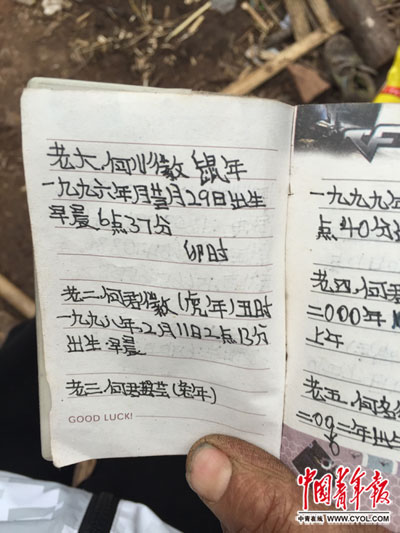 老大.何川徽 鼠年
一九九六年月月29日出生
早晨6点37分
卯时
老二.何君徽(虎年)丑时
一九九八年2月11日2点13分
出生.早晨
老三.何君(兔年)
GOOD LUCK!
一九九九年
点40分
老四.何君
二000年
上午
老五.何
二0年出
中国青年报
中青在线 WWW.CYOL.COM